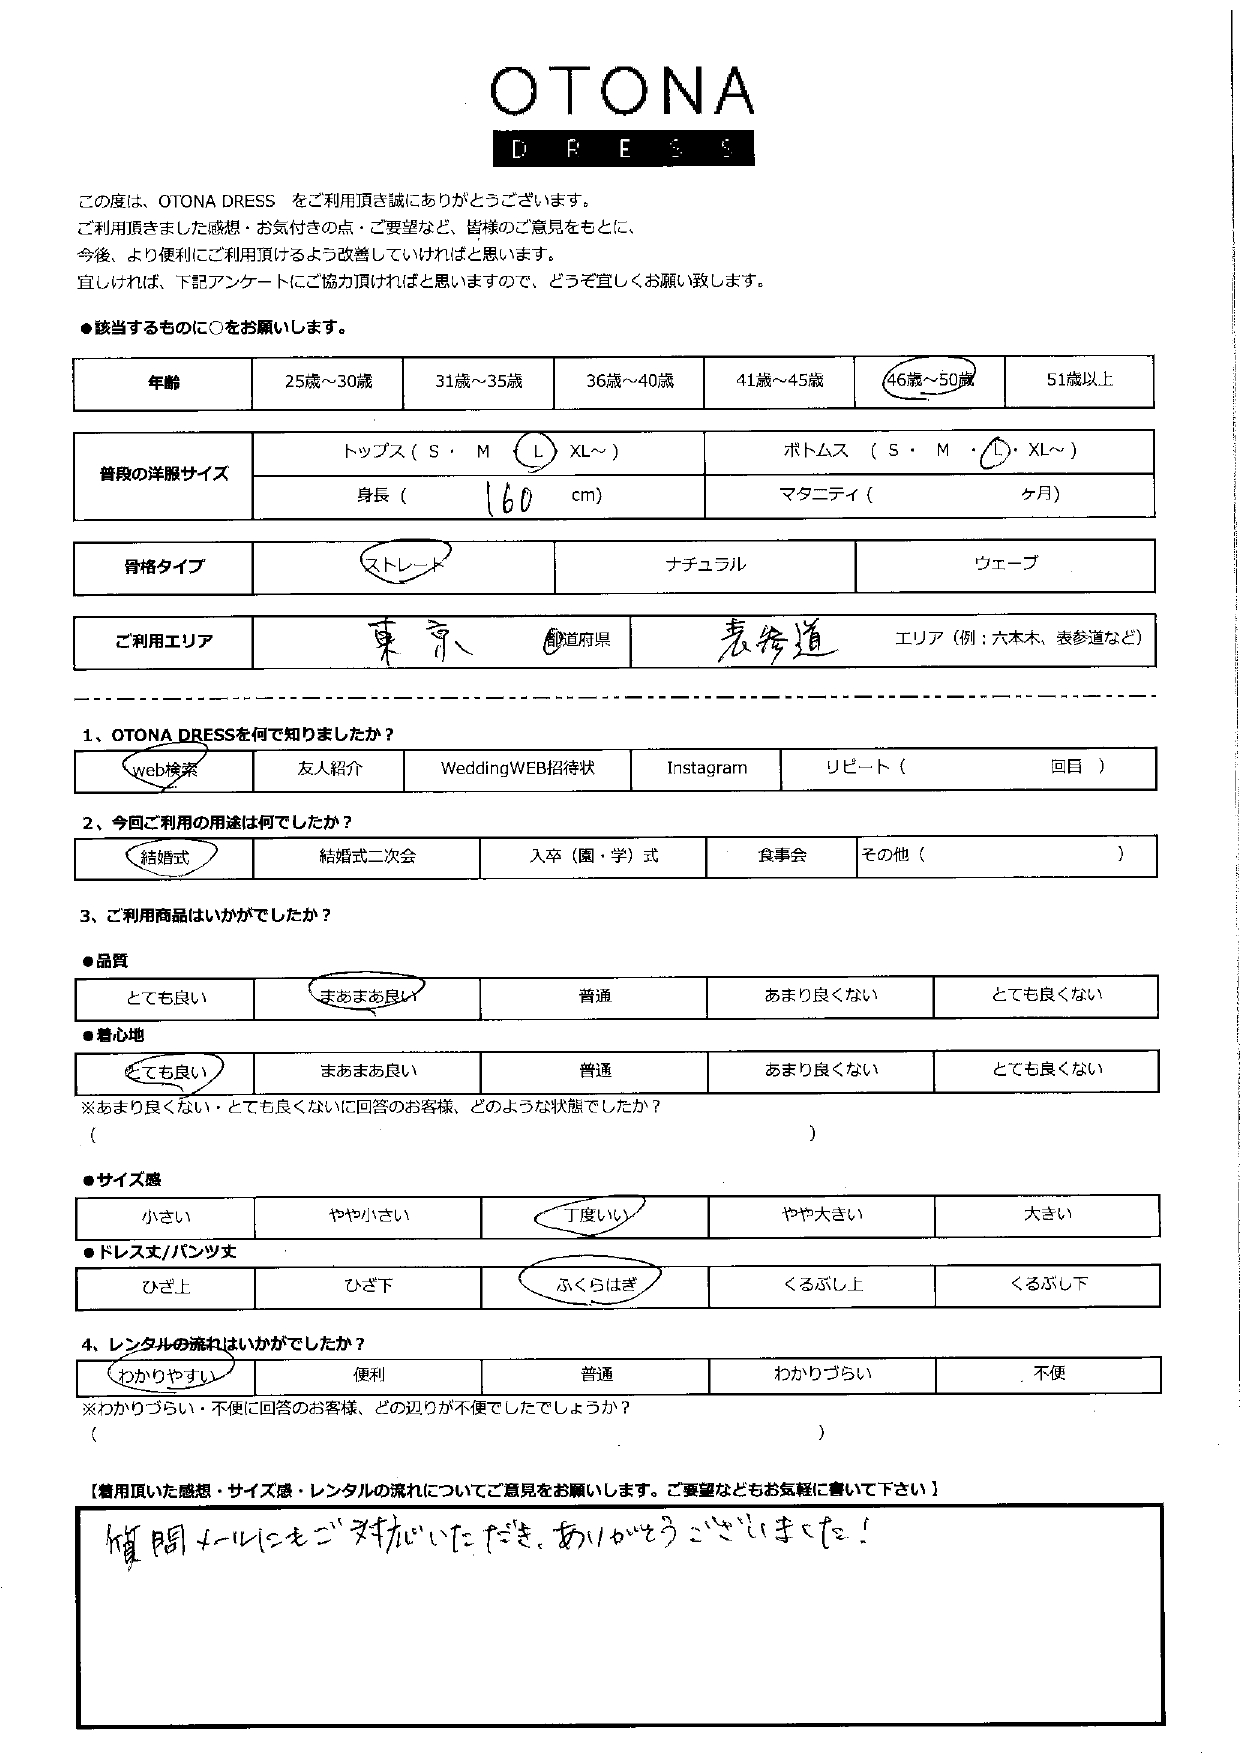 OTONA
DRESS
この度は、OTONA DRESS　をご利用頂き誠にありがとうございます。
ご利用頂きました感想・お気付きの点・ご要望など、皆様のご意見をもとに、
今後、より便利にご利用頂けるよう改善していければと思います。
宜しければ、下記アンケートにご協力頂ければと思いますので、どうぞ宜しくお願い致します。
●該当するものに○をお願いします。
年齢 25歳～30歳 31歳～35歳 36歳～40歳 41歳～45歳 46歳～50歳 51歳以上
普段の洋服サイズ トップス ( S ・ M ( L ) XL～ ) ボトムス ( S ・ M ・ L ・ XL～ )
身長 ( 160 cm) マタニティ ( ケ月)
骨格タイプ ストレート ナチュラル ウェーブ
ご利用エリア 東京 都道府県 表参道 エリア（例；六本木、表参道など）
1、OTONA DRESSを何で知りましたか？
web検索 友人紹介 WeddingWEB招待状 Instagram リピート（ 回目 ）
2、今回ご利用の用途は何でしたか？
結婚式 結婚式二次会 入卒（園・学）式 食事会 その他（ ）
3、ご利用商品はいかがでしたか？
●品質
とても良い まあまあ良い 普通 あまり良くない とても良くない
●着心地
とても良い まあまあ良い 普通 あまり良くない とても良くない
※あまり良くない・とても良くないに回答のお客様、どのような状態でしたか？
( )
●サイズ感
小さい やや小さい 丁度いい やや大きい 大きい
●ドレス丈/パンツ丈
ひざ上 ひざ下 ふくらはぎ くるぶし上 くるぶし下
4、レンタルの流れはいかがでしたか？
わかりやすい 便利 普通 わかりづらい 不便
※わかりづらい・不便に回答のお客様、どの辺りが不便でしたでしょうか？
( )
【着用頂いた感想・サイズ感・レンタルの流れについてご意見をお願いします。ご要望などもお気軽に書いて下さい】
質問メールにもご対応いただき、ありがとうございました！